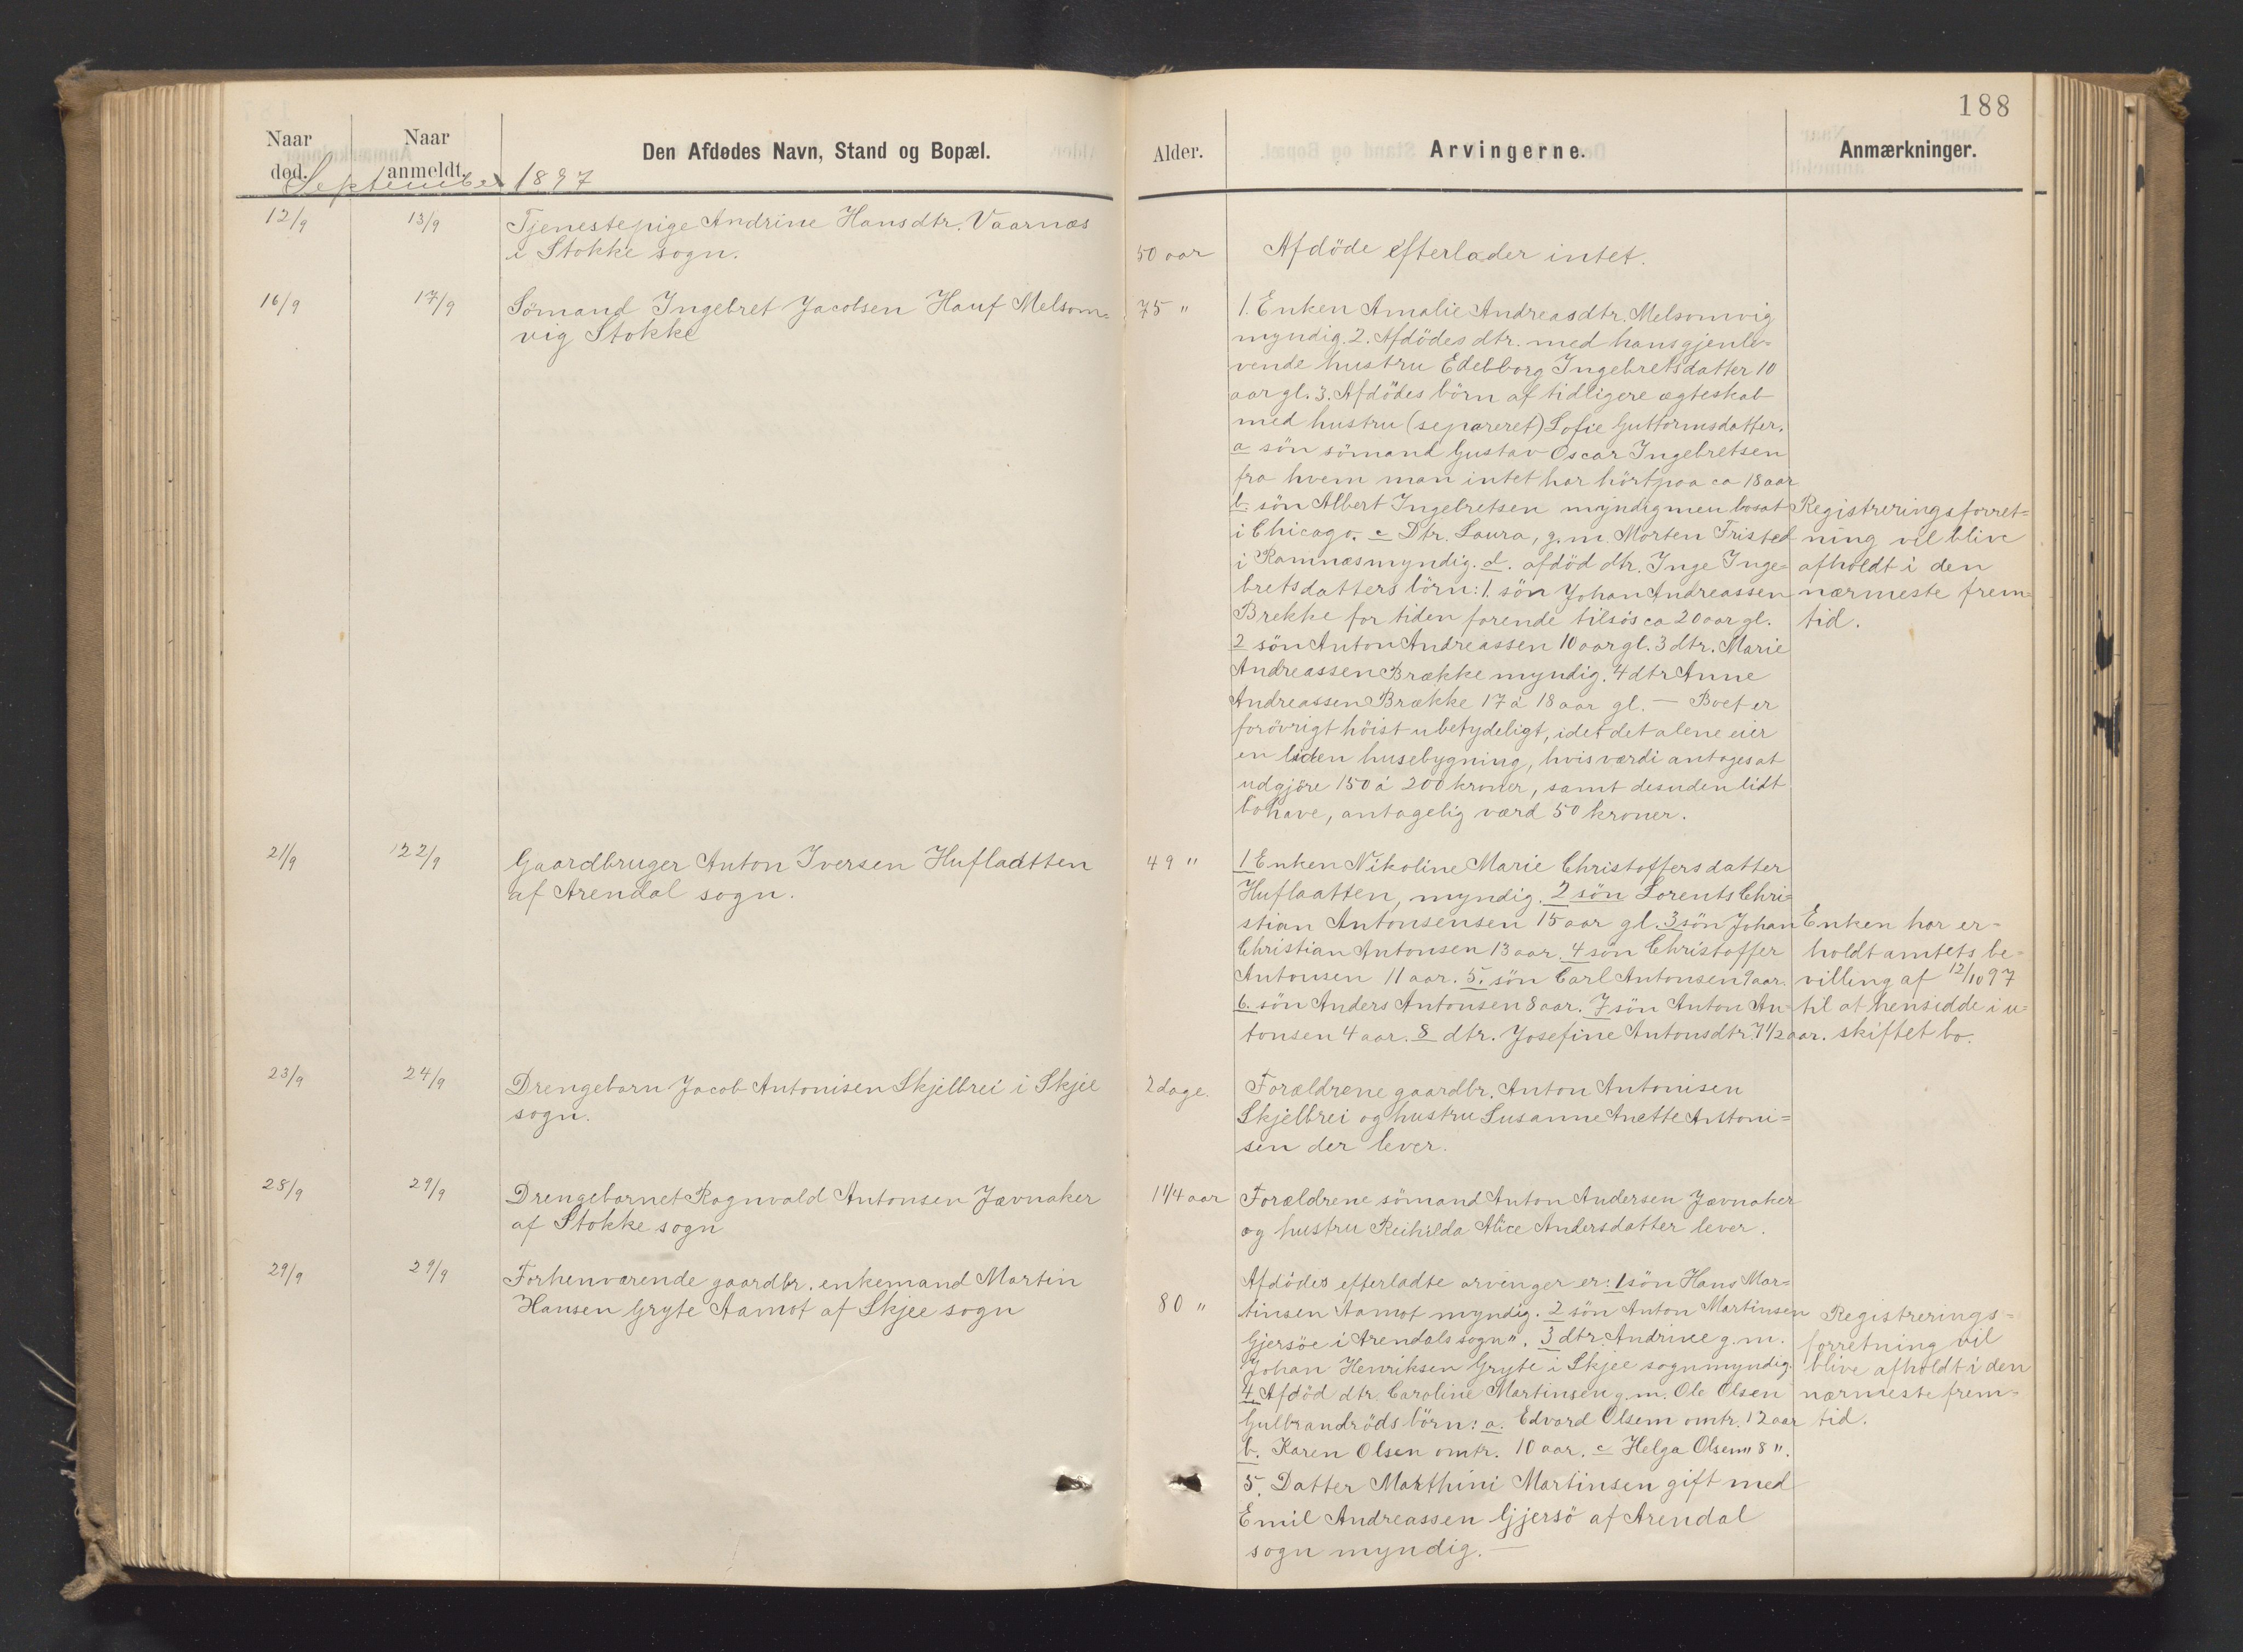 188
Naar død.
Naar anmeldt.
Den Afdødes Navn, Stand og Bopæl.
Alder.
Arvingerne.
Anmærkninger.
September 1897
12/9
13/9
Tjenestepige Andrine Hansdtr. Vaarnæs
i Stokke sogn.
50 aar
Afdöde efterlader intet.
16/9
17/9
Sömand Ingebret Jacobsen Hauf Melsom=
vig Stokke
75 "
1. Enken Amalie Andreasdtr. Melsomvig
myndig. 2. Afdödes dtr. med hans gjenle=
vende hustru Edelborg Ingebretsdatter 10
aar gl. 3. Afdödes börn af tidligere ægteskab
med hustru (separeret) Sofie Guttormsdatter.
a sön sömand Gustav Oscar Ingebretsen
fra hvem man intet har hört paa ca 18 aar
b. sön Albert Ingebretsen myndig men bosat
i Chicago. c Dtr. Laura, g. m. Morten Fristed
i Ramnæs myndig. d. afdöd dtr. Inge Inge=
bretsdatters börn: 1. sön Johan Andreassen
Brekke for tiden farende tilsös ca 20 aar gl.
2 sön Anton Andreassen 10 aar gl. 3 dtr. Marie
Andreassen Brække myndig. 4 dtr Anne
Andreassen Brække 17 á 18 aar gl. — Boet er
forövrigt höist ubetydeligt, idet det alene eier
en liden husebygning, hvis værdi antages at
udgjöre 150 á 200 kroner, samt desuden lidt
bohave, antagelig værd 50 kroner.
Registreringsforret=
ning vil blive
afholdt i den
nærmeste frem=
tid.
21/9
22/9
Gaardbruger Anton Iversen Huflaatten
af Arendal sogn.
49 "
1 Enken Nikoline Marie Christoffersdatter
Huflaatten, myndig. 2 sön Lorents Chri=
stian Antonsensen 15 aar gl. 3 sön Johan
Christian Antonsen 13 aar. 4 sön Christoffer
Antonsen 11 aar. 5. sön Carl Antonsen 9 aar.
6. sön Anders Antonsen 8 aar. 7 sön Anton An=
tonsen 4 aar. 8 dtr. Josefine Antonsdtr. 7 1/2 aar.
Enken har er=
holdt amtets be=
villing af 12/10 97
til at hensidde i u=
skiftet bo.
23/9
24/9
Drengebarn Jacob Antonisen Skjelbrei i Skjee
sogn.
2 dage.
Forældrene gaardbr. Anton Antonisen
Skjelbrei og hustru Susanne Anette Antoni=
sen der lever.
28/9
29/9
Drengebarnet Ragnvald Antonsen Jævnaker
af Stokke sogn
1 1/4 aar
Forældrene sömand Anton Andersen Jævnaker
og hustru Reihilda Alice Andersdatter lever.
29/9
29/9
Forhenværende gaardbr. enkemand Martin
Hansen Gryte Aamot af Skjee sogn
80 "
Afdödes efterladte arvinger er: 1 sön Hans Mar=
tinsen Aamot myndig. 2 sön Anton Martinsen
Gjersöe i Arendals sogn ". 3 dtr. Andrine g. m.
Johan Henriksen Gryte i Skjee sogn myndig.
4. Afdöd dtr. Caroline Martinsen g. m. Ole Olsen
Gulbrandröds börn: a. Edvard Olsen omtr. 12 aar
b. Karen Olsen omtr. 10 aar. c Helga Olsen " 8 ".
5. Datter Marthini Martinsen gift med
Emil Andreassen Gjersö af Arendal
sogn myndig. —
Registrerings=
forretning vil
blive afholdt i den
nærmeste frem=
tid.